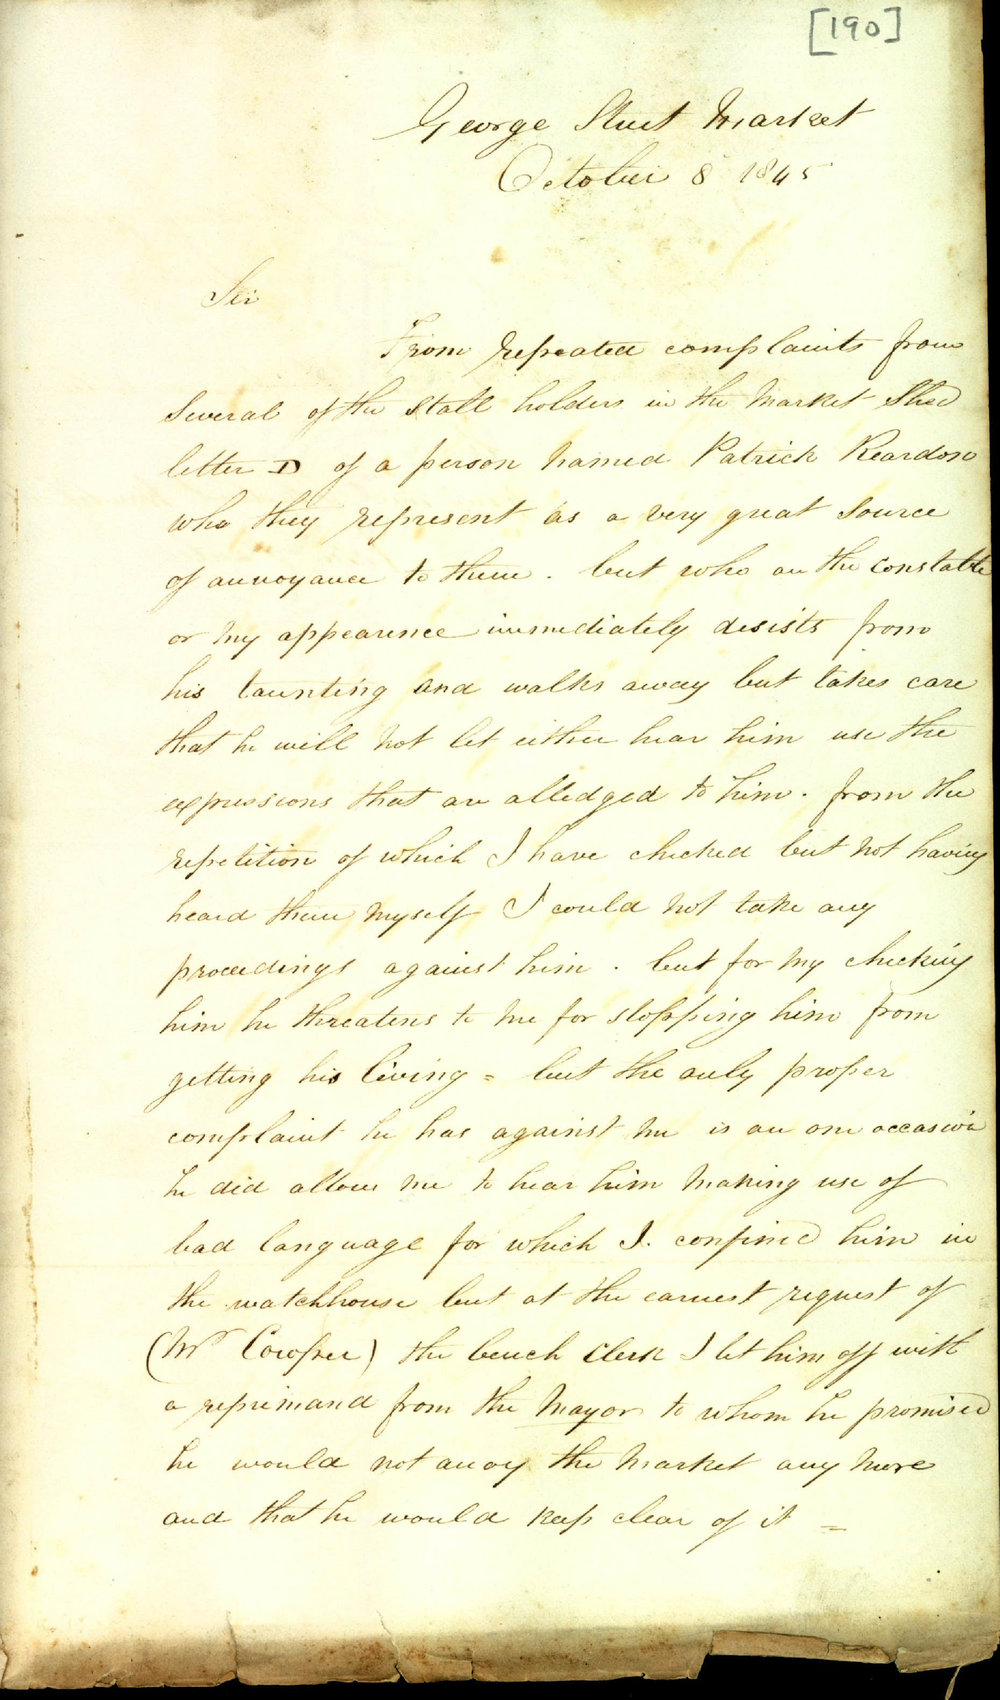 [190]
George Street Market
October 8 1845
Sir
From repeated complaints from
several of the stall holders in the Market Shed
letter D of a person named Patrick Reardon
who they represent as a very great source
of annoyance to them. but who on the constable
or my appearence immediately desists from
his taunting and walks away but takes care
that he will not let either hear him use the
expressions that are alledged to him. from the
repetition of which I have checked but not having
heard them myself I could not take any
proceedings against him. but for my checking
him he threatens to me for stopping him from
getting his living = but the only proper
complaint he has against me is on one occasion
he did allow me to hear him making use of
bad language for which I. confined him in
the watchhouse but at the earnest request of
(Mr Cowper) the bench clerk I let him off with
a reprimand from the Mayor to whom he promised
he would not anoy the market any more
and that he would keep clear of it =